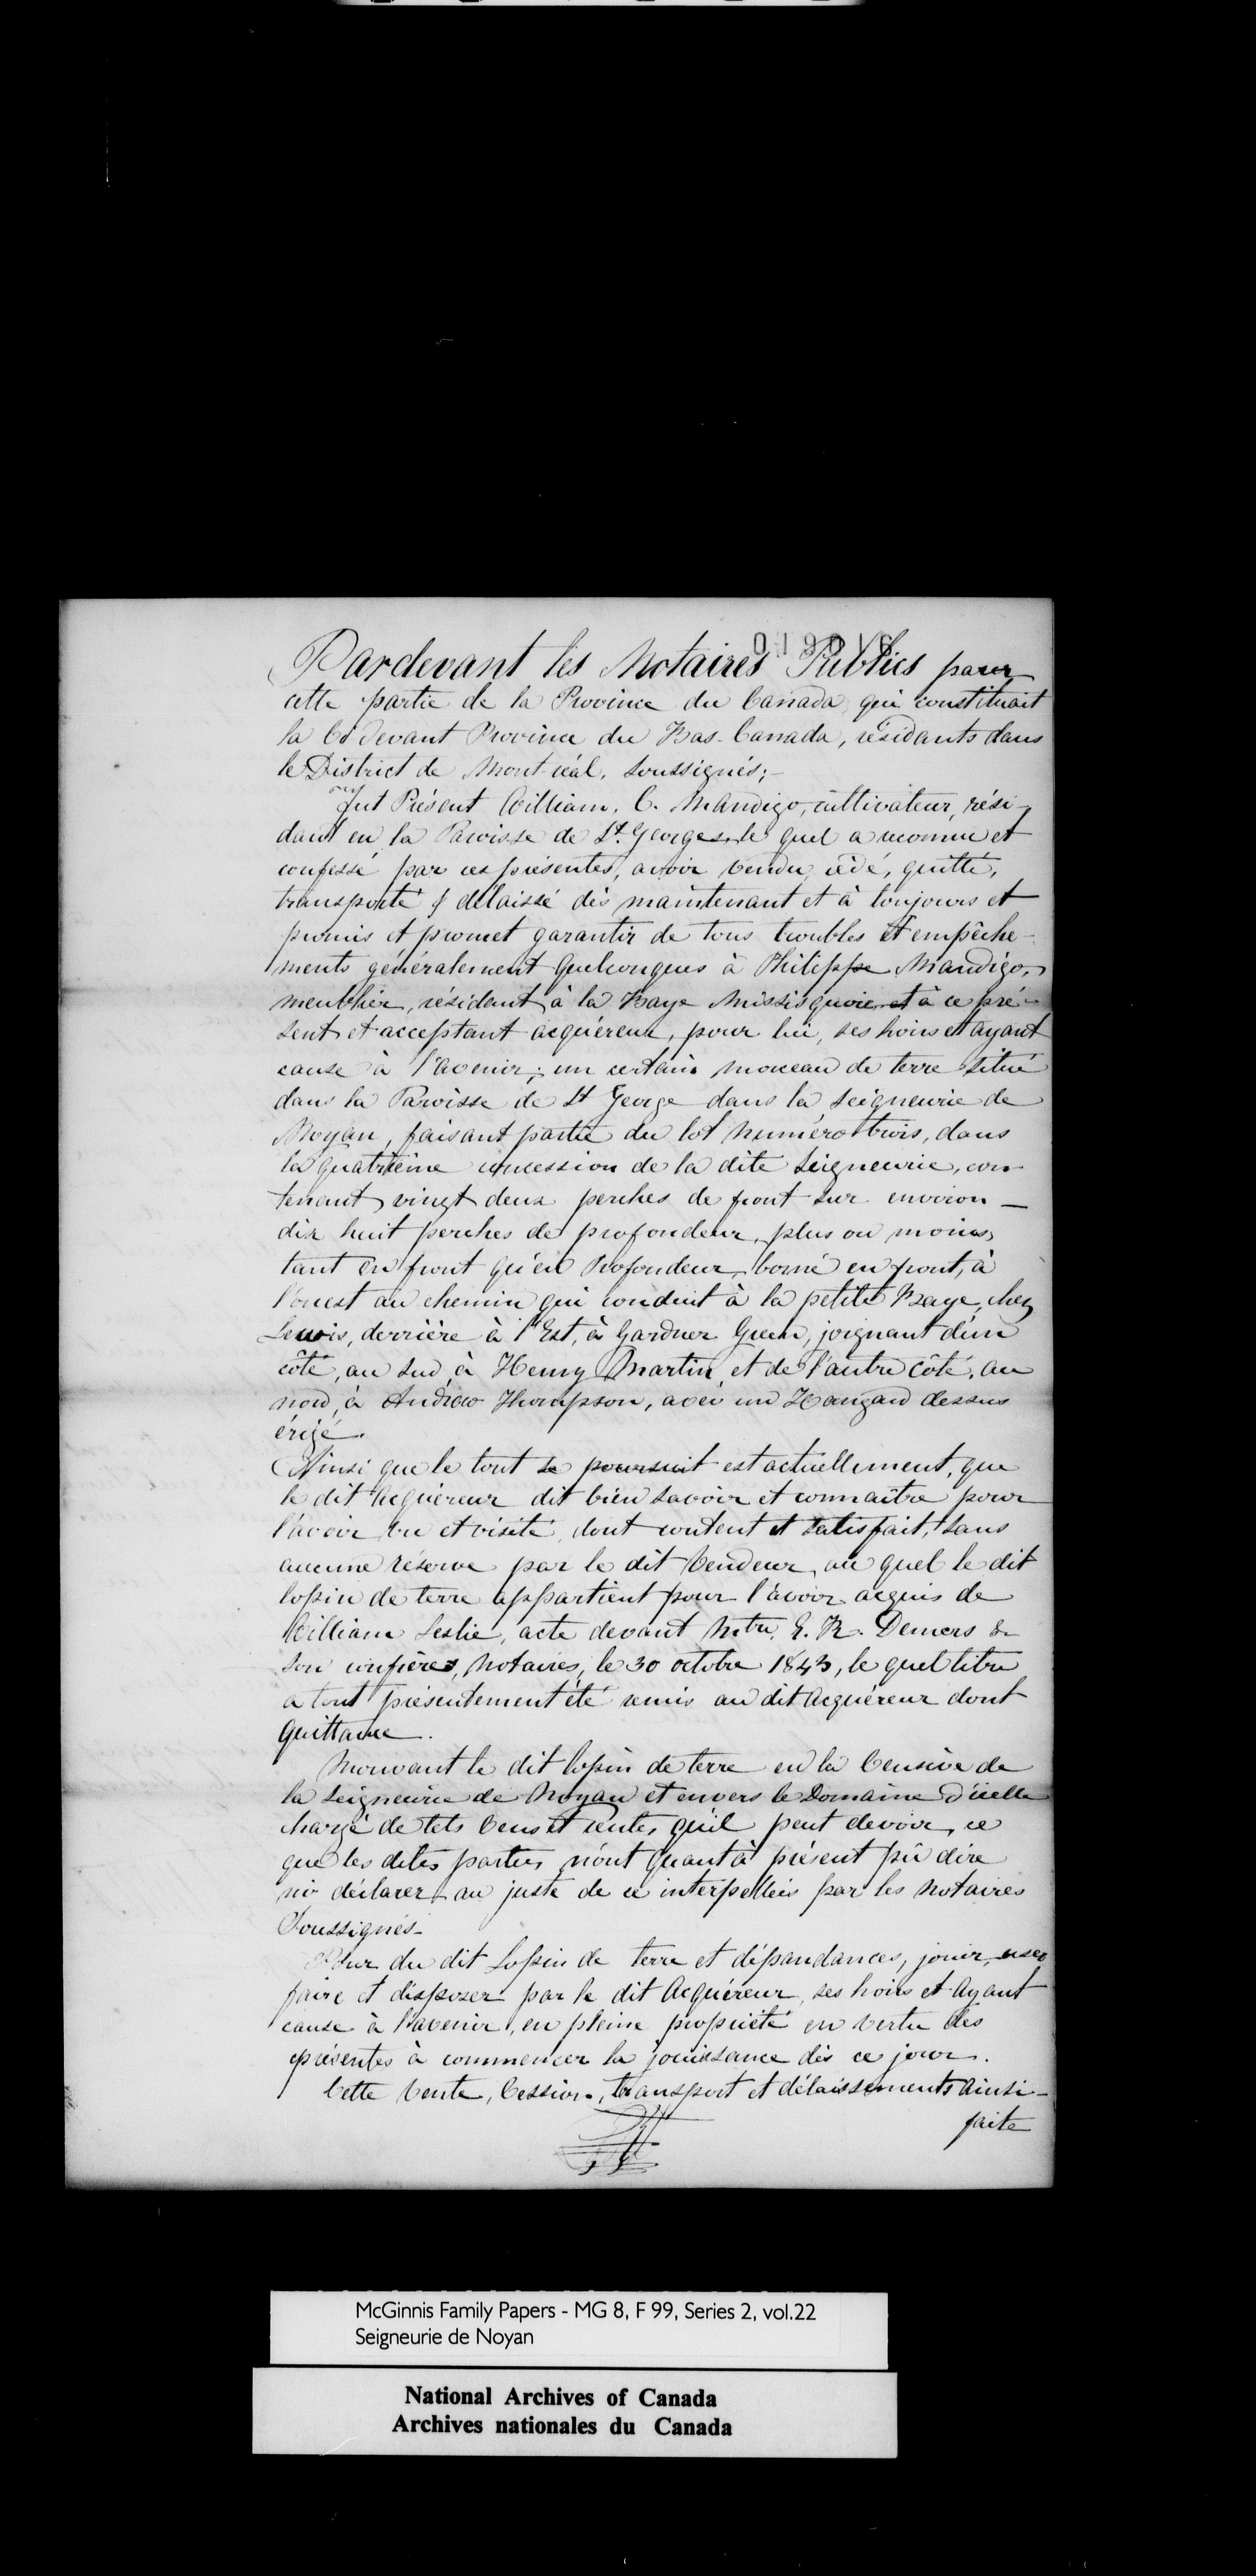 Pardevant les Notaires Publics pour
cette partie de la Province du Canada qui constituait
la Ci devant Province du Bas-Canada, résidants dans
le District de Montréal, soussignés;-
Fut Présent William C. Mandigo, cultivateur, rési-
dant en la Paroisse de St. Georges, le quel a reconnu et
confessé par ces présentes, avoir vendu, cédé, quitté,
transporté & délaissé dès maintenant et à toujours et
promis et promet garantir de tous troubles et empêche-
ments généralement quelconques à Philippe Mandigo,
meublier, résidant à la Baye Missisquoie et à ce pré-
sent et acceptant acquéreur, pour lui, ses hoirs et ayant
cause à l'avenir; un certain morceau de terre situé
dans la Paroisse de St George dans la Seigneurie de
Noyan, faisant partie du lot numéro trois, dans
la quatrième concession de la dite Seigneurie, con-
tenant vingt deux perches de front sur environ -
dix huit perches de profondeur, plus ou moins,
tant en front qu'en Profondeur, borné en front, à
l'ouest au chemin qui conduit à la petite Baye, chez
Lewis, derrière à l'Est, à Gardner Green, joignant d'un
côté, au sud, à Henry Martin, et de l'autre côté, au
nord, à Andrew Thompson, avec un Hangard dessus
érigé.
Ainsi que le tout se poursuit est actuellement, que
le dit Acquéreur dit bien savoir et connaître pour
l'avoir vu et visité, dont content et satisfait, sans
aucune réserve par le dit Vendeur, au quel le dit
lopin de terre appartient pour l'avoir acquis de
William Leslie, acte devant Mtre. E. R. Demers &
son confrère, Notaires, le 30 octobre 1843, le quel titre
a tout présentement été remis au dit Acquéreur dont
quittance.
Mouvant le dit lopin de terre en la Censive de
la Seigneurie de Noyan et envers le Domaine d'icelle
chargé de tels Cens et rentes qu'il peut devoir, ce
que les dites parties n'ont quant à présent pû dire
ni déclarer au juste de ce interpellées par les Notaires
Soussignés-
Pour du dit Lopin de terre et dépandances, jouir, user
faire et disposer par le dit Acquéreur, ses hoirs et Ayant
cause à l'avenir, en pleine propriété en vertu des
présentes à commencer la jouissance dès ce jour.
Cette Vente, Cession, transport et délaissements ainsi-
faite
McGinnis Family Papers - MG 8, F 99, Series 2, vol.22
Seigneurie de Noyan
National Archives of Canada
Archives nationales du Canada